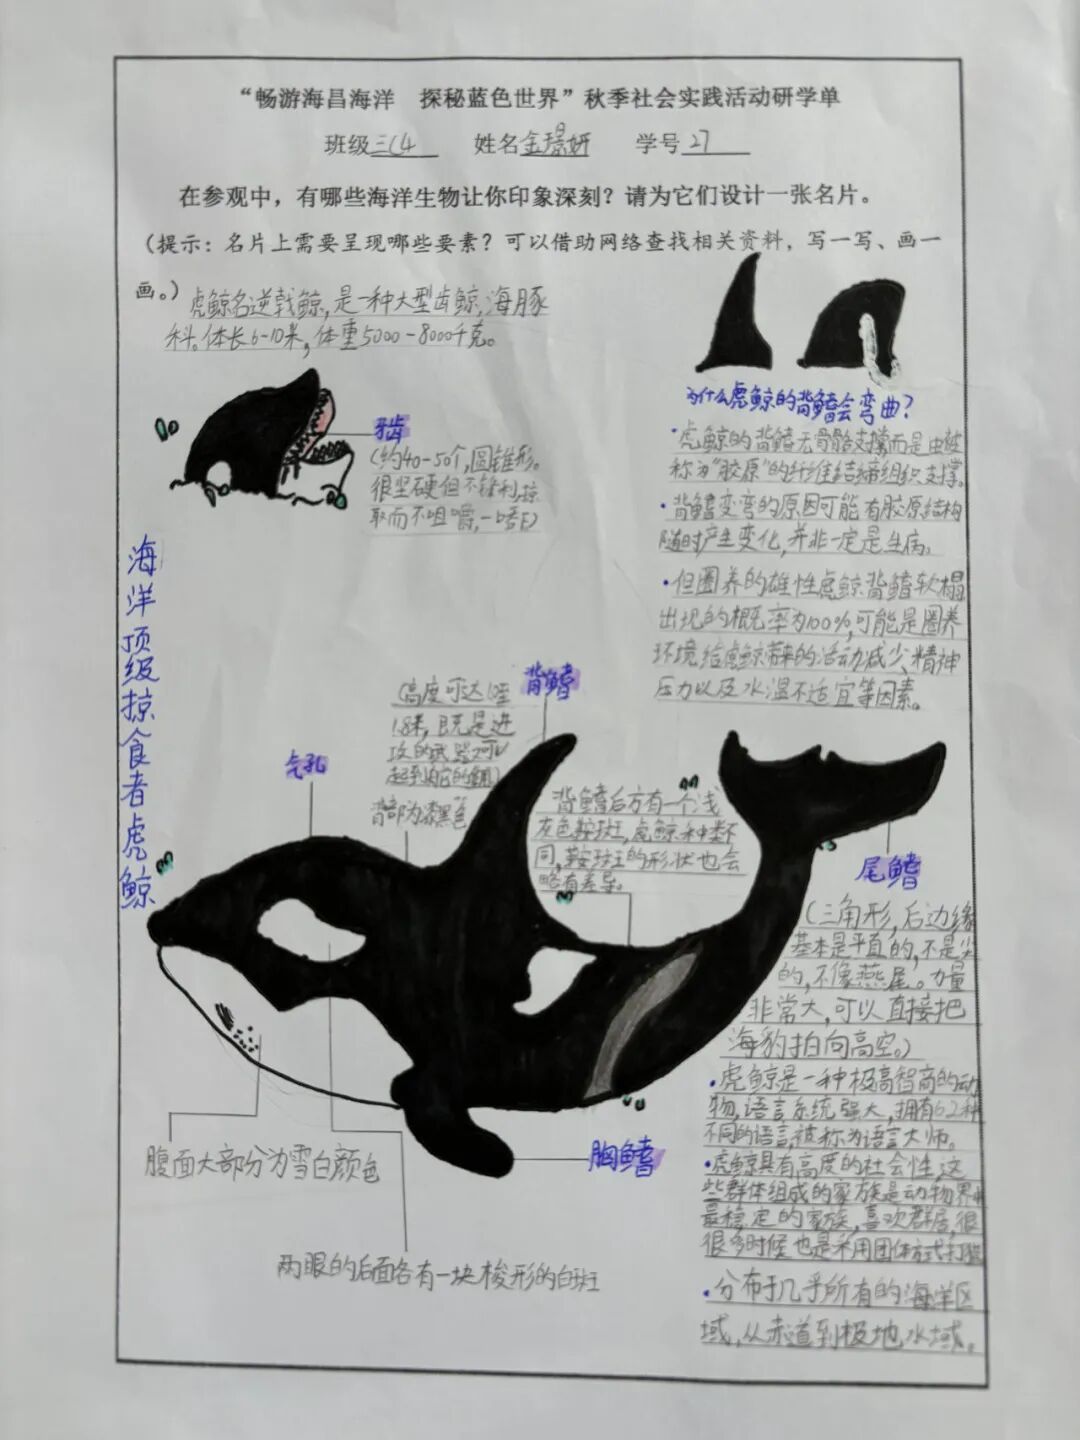 “畅游海昌海洋　探秘蓝色世界”秋季社会实践活动研学单
班级三(4　姓名金璟妍　学号27
在参观中，有哪些海洋生物让你印象深刻？请为它们设计一张名片。
（提示：名片上需要呈现哪些要素？可以借助网络查找相关资料，写一写、画一
画。）
虎鲸名逆戟鲸,是一种大型齿鲸,海豚
科。体长6-10米,体重5000-8000千克。
牙齿
(约40-50个,圆锥形。
很坚硬但不锋利,掠
取而不咀嚼,一吞下)
为什么虎鲸的背鳍会弯曲?
·虎鲸的背鳍无骨骼支撑,而是由被
称为“胶原”的纤维结缔组织支撑。
·背鳍变弯的原因可能有胶原结构
随时产生变化,并非一定是生病。
·但圈养的雄性虎鲸背鳍软榻
出现的概率为100%,可能是圈养
环境给虎鲸带来的活动减少、精神
压力以及水温不适宜等因素。
海洋顶级掠食者虎鲸
背鳍
(高度可达1至
1.8米,既是进
攻的武器,又可以
起到
背部为漆黑色
气孔
背鳍后方有一个浅
灰色鞍斑,虎鲸种类不
同,鞍斑的形状也会
略有差异。
尾鳍
(三角形,后边缘
基本是平直的,不是尖
的,不像燕尾。力量
非常大,可以直接把
海豹拍向高空。)
·虎鲸是一种极高智商的动
物,语言系统强大,拥有62种
不同的语言,被称为语言大师。
·虎鲸具有高度的社会性,这
些群体组成的家族是动物界中
最稳定的家族,喜欢群居,很
很多时候也是采用团体方式打猎
·分布于几乎所有的海洋区
域,从赤道到极地水域。
胸鳍
腹面大部分为雪白颜色
两眼的后面各有一块梭形的白斑